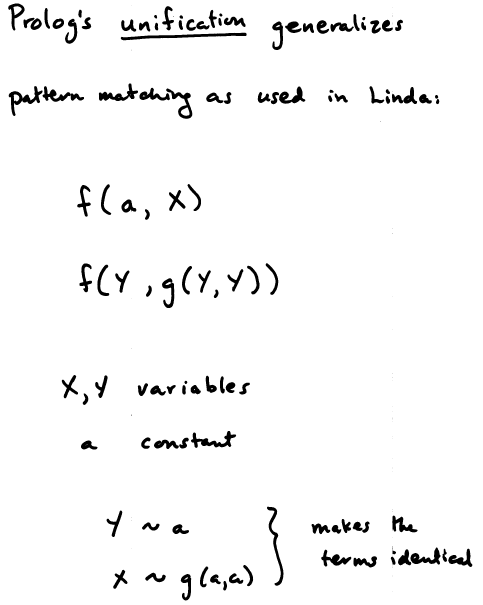 Prolog's unification generalizes
pattern matching as used in Linda:
f(a, X)
f(Y, g(Y,Y))
X,Y variables
a constant
Y ~ a
X ~ g(a,a)
} makes the
terms identical